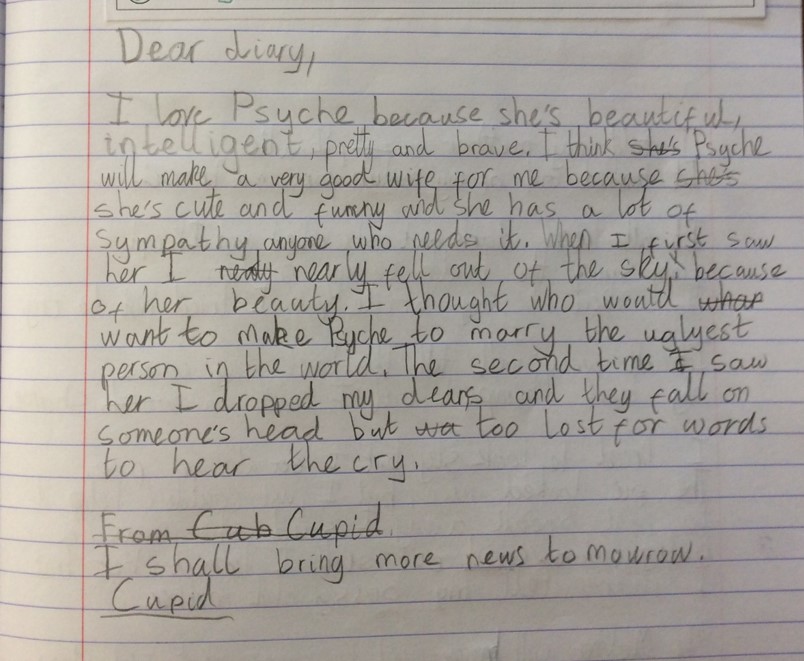 Dear diary,
I love Psyche because she's beautiful,
intelligent, pretty and brave. I think she's Psyche
will make a very good wife for me because she's
she's cute and funny and she has a lot of
sympathy anyone who needs it. When I first saw
her I nearly fell out of the sky, because
of her beauty. I thought who would what
want to make Psyche to marry the uglyest
person in the world. The second time I saw
her I dropped my dears and they fall on
someone's head but wa too lost for words
to hear the cry.
From Cub Cupid
I shall bring more news tomowrow.
Cupid